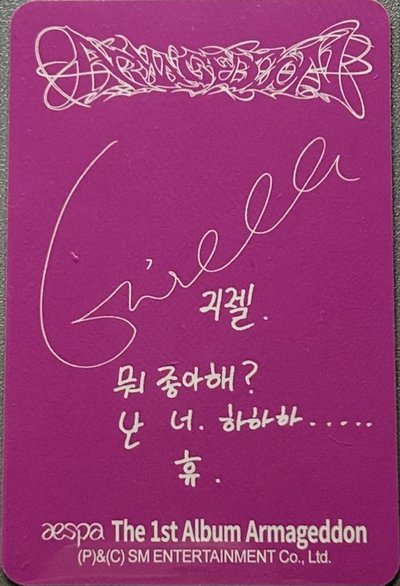 ARMAGEDDON
Giselle
지젤.
뭐 좋아해?
난 너. 하하하.....
휴.
aespa The 1st Album Armageddon
(P)&(C) SM ENTERTAINMENT Co., Ltd.